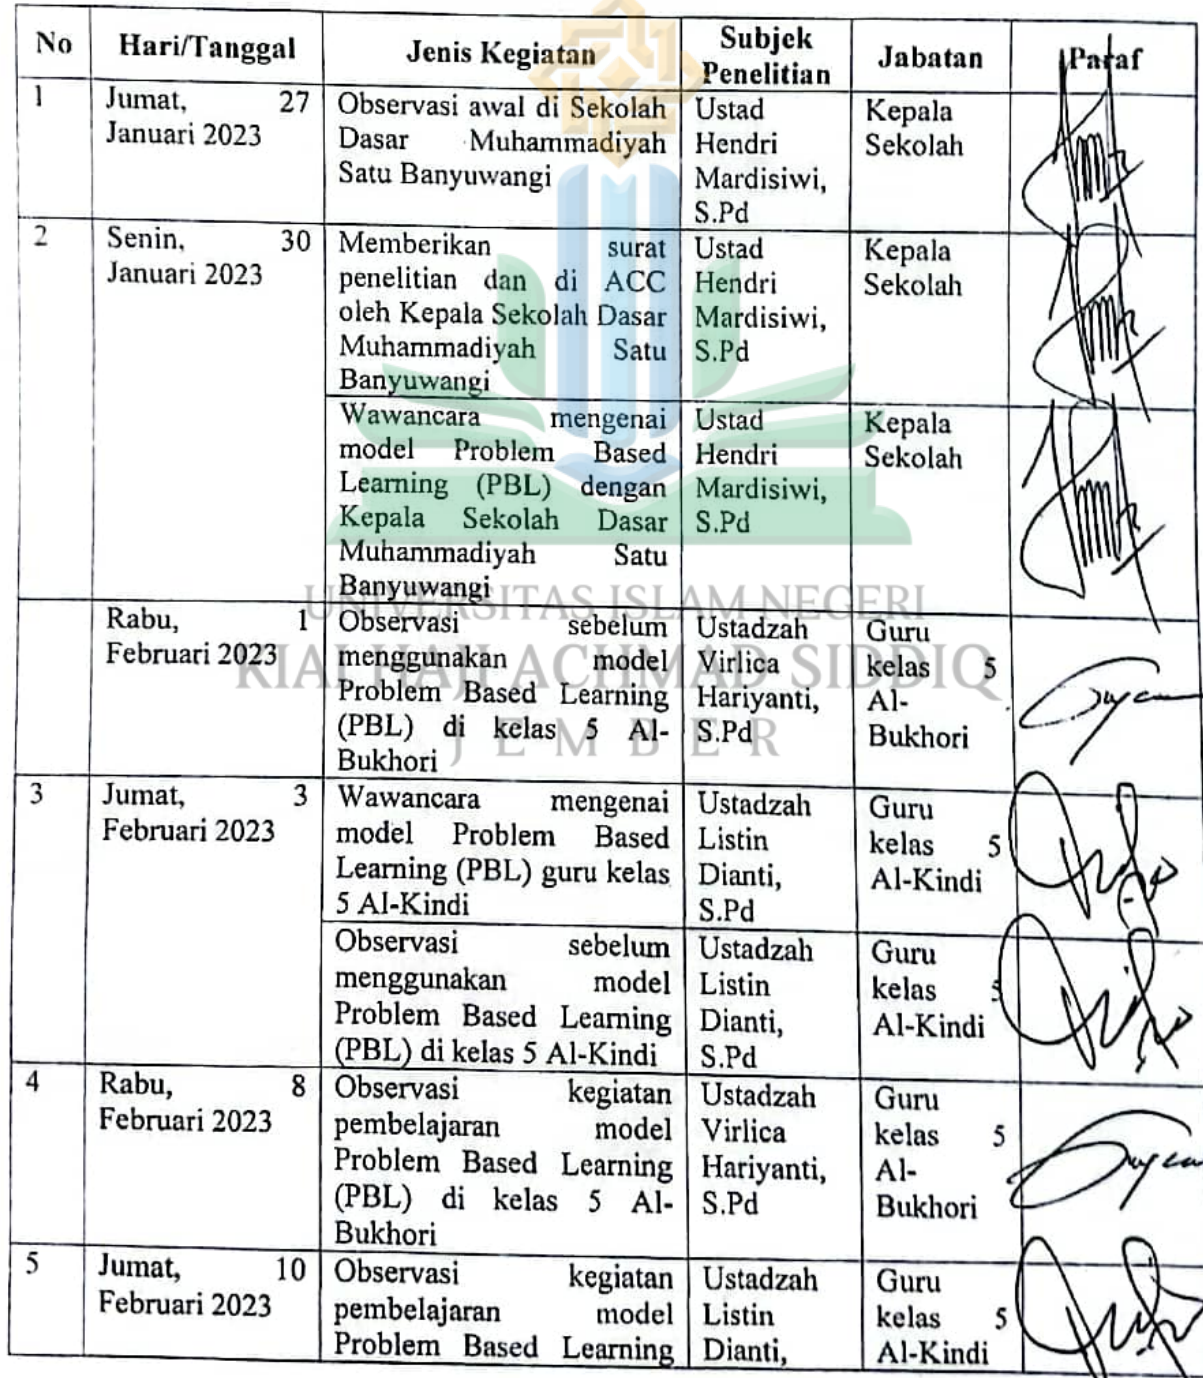 No Hari/Tanggal Jenis Kegiatan Subjek Penelitian Jabatan Paraf
1
Jumat, 27
Januari 2023
Observasi awal di Sekolah
Dasar Muhammadiyah
Satu Banyuwangi
Ustad
Hendri
Mardisiwi,
S.Pd
Kepala
Sekolah
2
Senin, 30
Januari 2023
Memberikan surat
penelitian dan di ACC
oleh Kepala Sekolah Dasar
Muhammadiyah Satu
Banyuwangi
Ustad
Hendri
Mardisiwi,
S.Pd
Kepala
Sekolah
Wawancara mengenai
model Problem Based
Learning (PBL) dengan
Kepala Sekolah Dasar
Muhammadiyah Satu
Banyuwangi
Ustad
Hendri
Mardisiwi,
S.Pd
Kepala
Sekolah
UNIVERSITAS ISLAM NEGERI
KIAI HAJI ACHMAD SIDDIQ
JEMBER
Rabu, 1
Februari 2023
Observasi sebelum
menggunakan model
Problem Based Learning
(PBL) di kelas 5 Al-
Bukhori
Ustadzah
Virlica
Hariyanti,
S.Pd
Guru
kelas 5
Al-
Bukhori
3
Jumat, 3
Februari 2023
Wawancara mengenai
model Problem Based
Learning (PBL) guru kelas
5 Al-Kindi
Ustadzah
Listin
Dianti,
S.Pd
Guru
kelas 5
Al-Kindi
Observasi sebelum
menggunakan model
Problem Based Learning
(PBL) di kelas 5 Al-Kindi
Ustadzah
Listin
Dianti,
S.Pd
Guru
kelas 5
Al-Kindi
4
Rabu, 8
Februari 2023
Observasi kegiatan
pembelajaran model
Problem Based Learning
(PBL) di kelas 5 Al-
Bukhori
Ustadzah
Virlica
Hariyanti,
S.Pd
Guru
kelas 5
Al-
Bukhori
5
Jumat, 10
Februari 2023
Observasi kegiatan
pembelajaran model
Problem Based Learning
Ustadzah
Listin
Dianti,
Guru
kelas 5
Al-Kindi